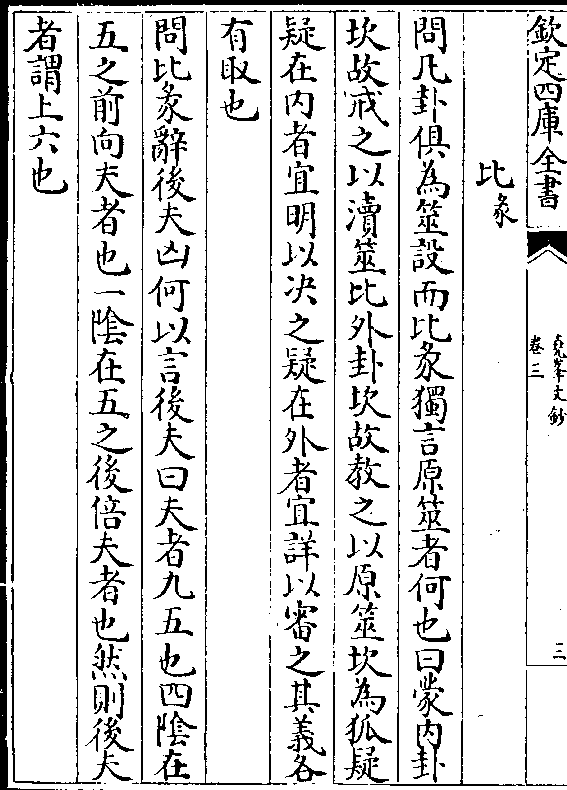 欽定四庫全書
堯峯文鈔
卷三
三
比彖
問凡卦俱為筮設而比彖獨言原筮者何也曰蒙内卦
坎故戒之以瀆筮比外卦坎故教之以原筮坎為狐疑
疑在内者宜明以决之疑在外者宜詳以審之其義各
有取也
問比彖辭後夫凶何以言後夫曰夫者九五也四隂在
五之前向夫者也一隂在五之後倍夫者也然則後夫
者謂上六也